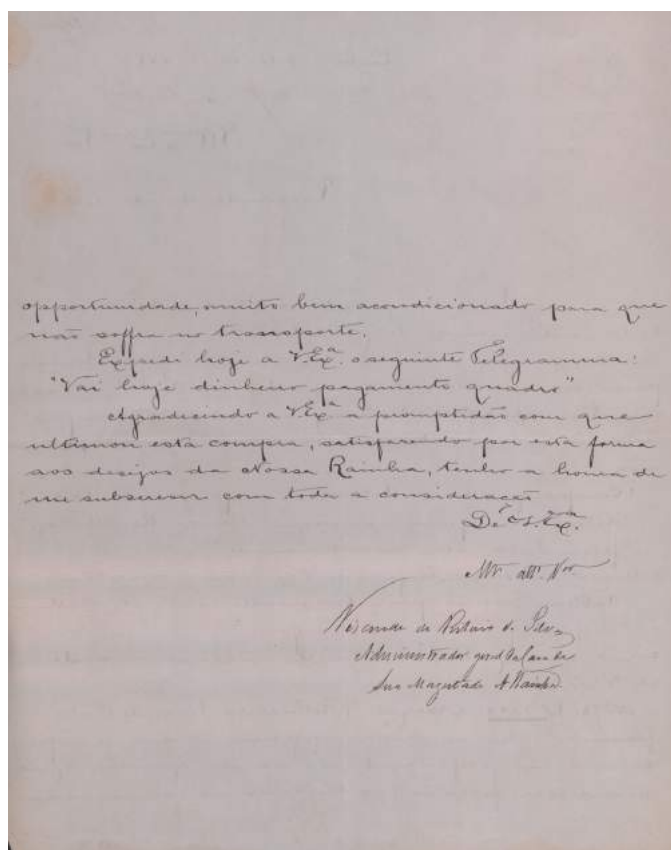 opportunidade, muito bem acondicionado para que
não soffra no transporte.
Expedi hoje a V.Exª. o seguinte Telegramma:
"Vai hoje dinheiro pagamento quadro"
Agradecendo a V.Exª a promptidão com que
ultimou esta compra, satisfazendo por esta forma
aos desejos da Nossa Rainha, tenho a honra de
me subscrever com toda a consideração
De V.Exª.
Mto. attº. Vor.
Visconde da
Administrador geral da Casa de
Sua Magestade A Rainha.